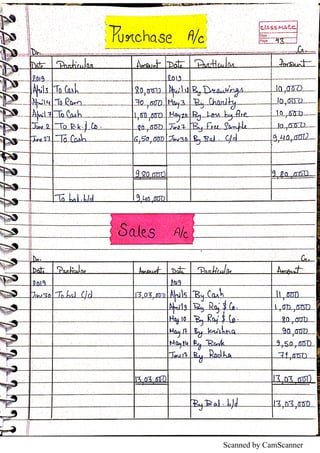 Purchase A/c
classmate
Date
Page 43
Dr. Cr.
Date Particular Amount Date Particular Amount
2019 2019
April 3 To Cash 80,000 April 12 By Drawings 10,000
April 4 To Ram 70,000 May 3 By Charity 10,000
April 7 To Cash 1,00,000 May 20 By Loss by fire 10,000
June 2 To R.k. & Co. 80,000 June 7 By Free Sample 10,000
June 27 To Cash 6,50,000 Jun 30 By Bal. c/d 9,40,000
9,80,000 9,80,000
To bal. b/d 9,40,000
Sales A/c
Dr. Cr.
Date Particular Amount Date Particular Amount
2019 2019
Jun 30 To bal c/d 13,03,000 April 5 By Cash 11,000
April 9 By Raj & Co. 1,00,000
May 10 By Raj & Co. 80,000
May 13 By krishna 90,000
May 14 By Bank 9,50,000
Jun 13 By Radha 72,000
13,03,000 13,03,000
By Bal. b/d 13,03,000
Scanned by CamScanner